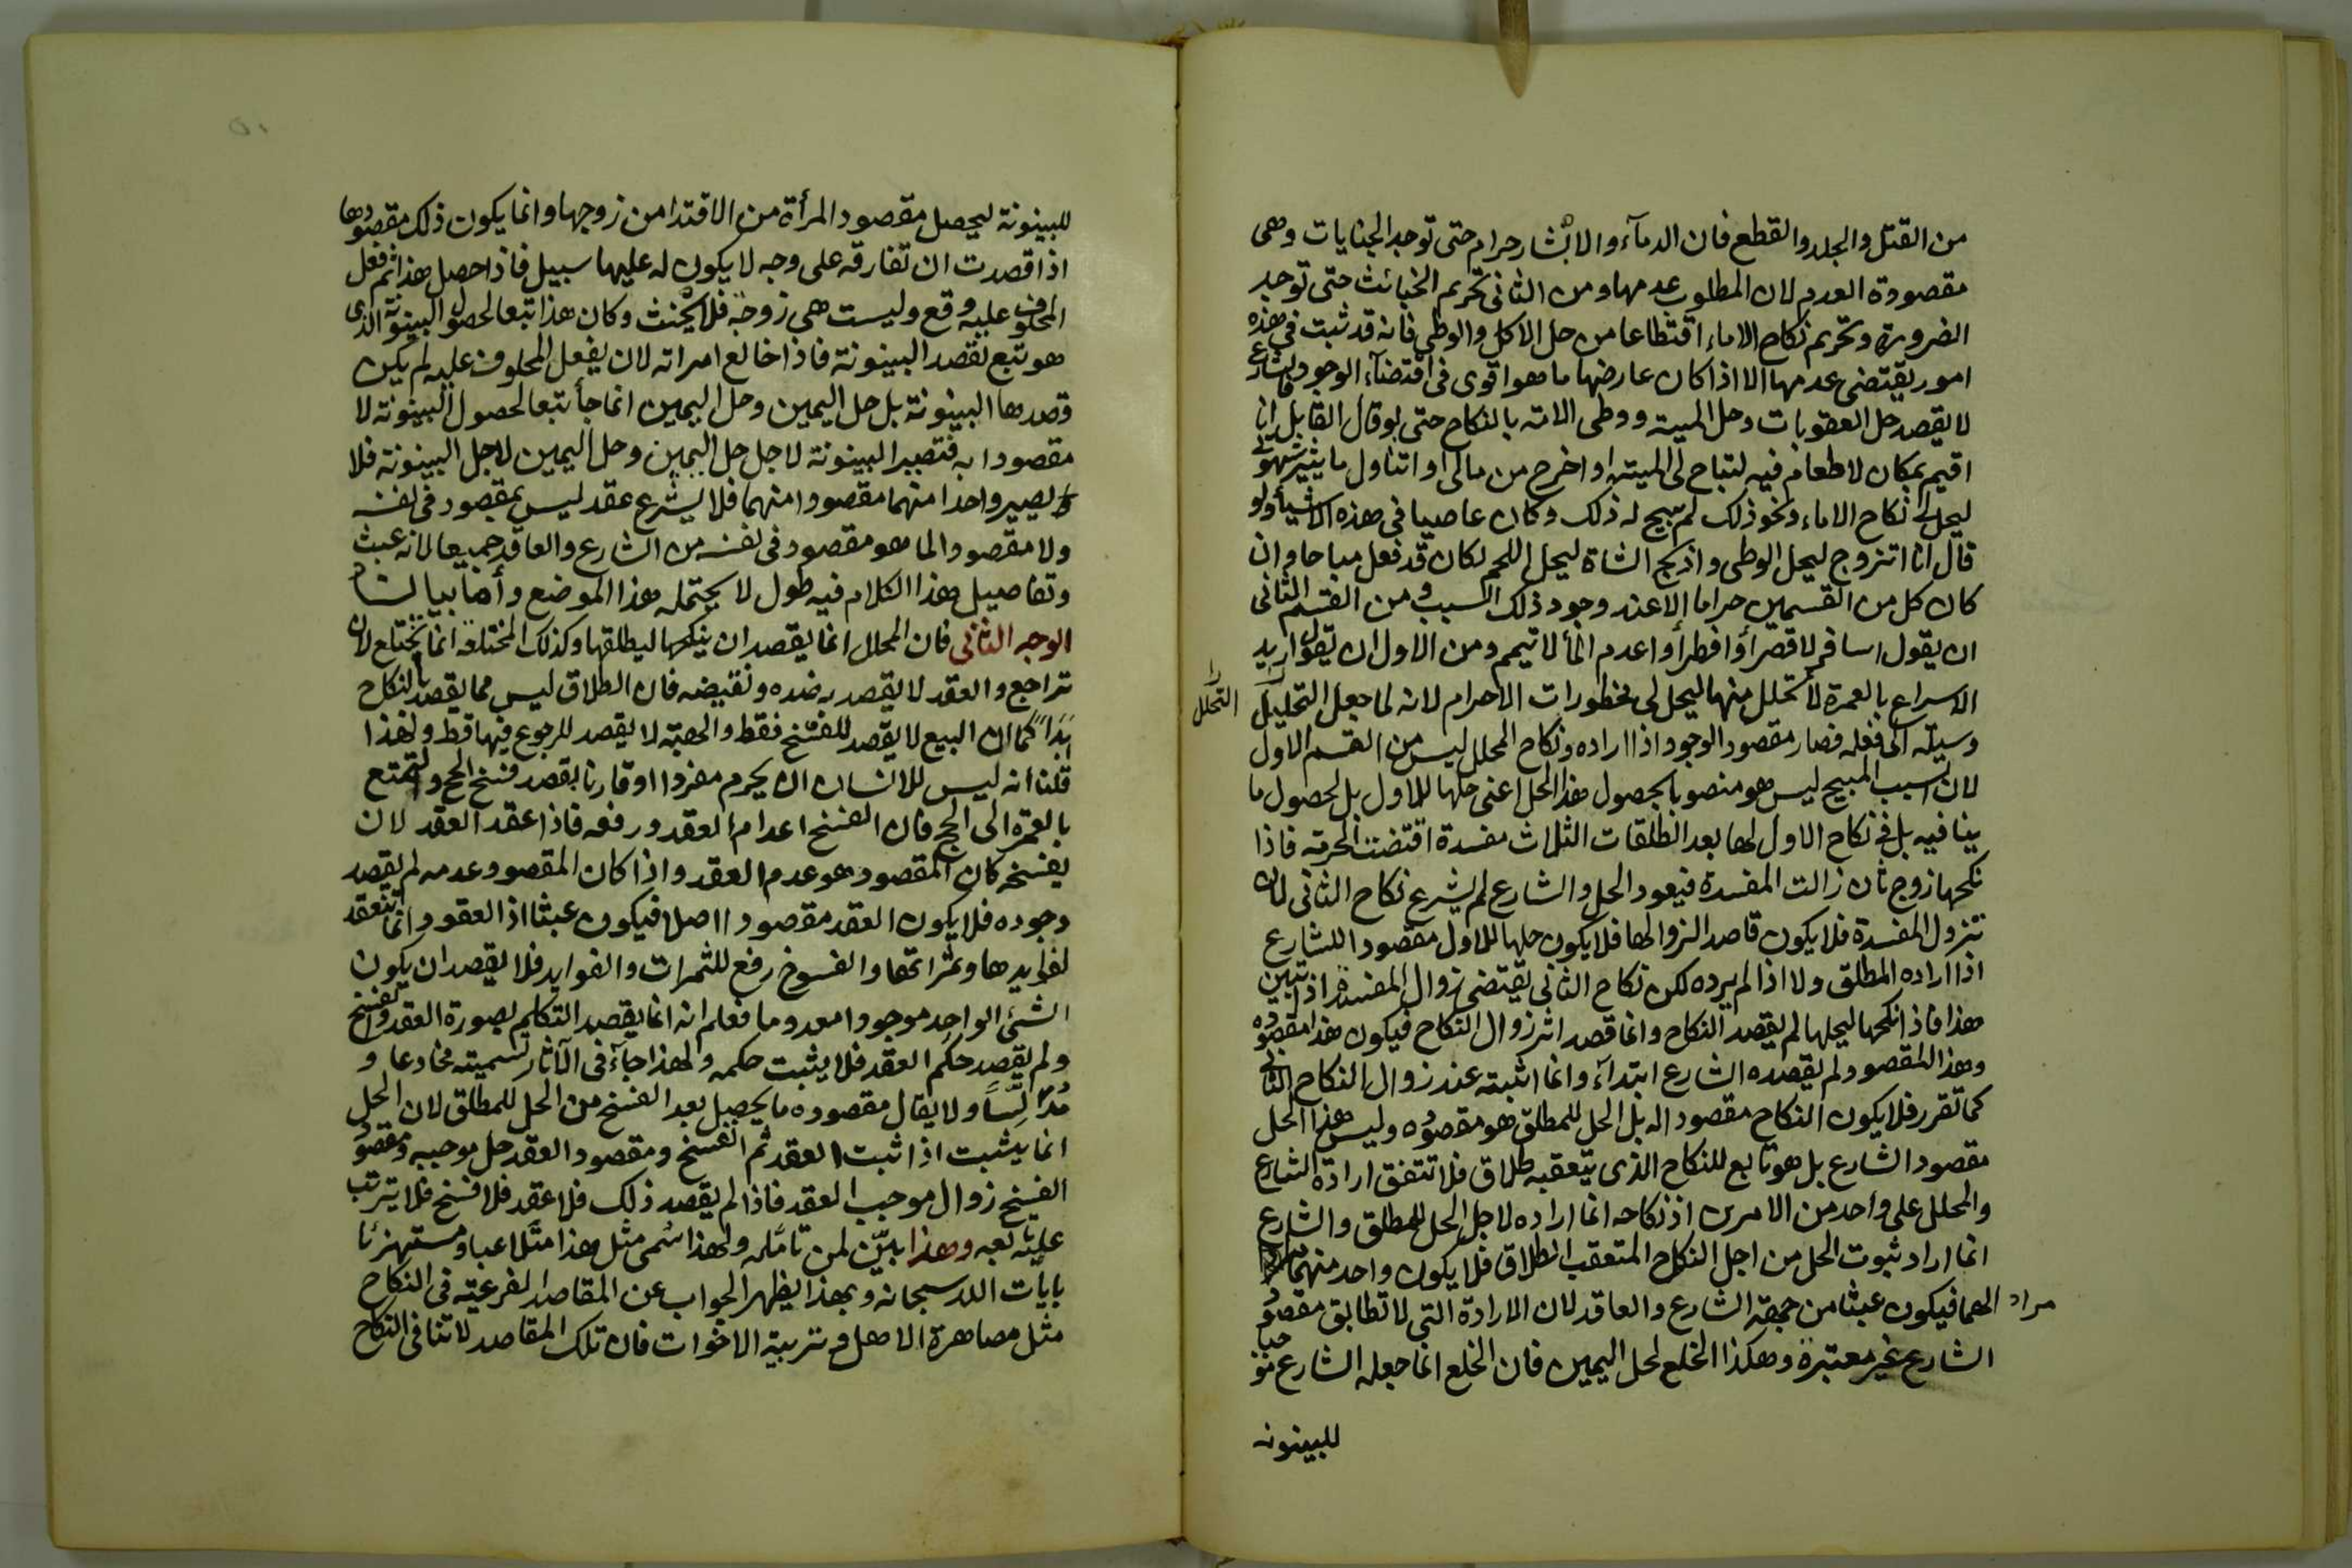 من القتل والجلد والقطع فان الدمآء والابشار حرام حتى توجد الجنايات وهى
مقصودة العدم لان المطلوب عدمها ومن الثانى تحريم الخبائث حتى توجد
الضرورة وتحريم نكاح الاماء اقتطاعا من حل الاكل والوطى فانه قد ثبت فى هذه
امور يقتضى عدمها الا اذا كان عارضها ما هو اقوى فى اقتضآء الوجود فالشارع
لا يقصد حل العقوبات وحل الميتة ووطى الامة بالنكاح حتى لو قال القايل انا
اقيم بمكان لا طعام فيه لتباح لى الميتة او اخرج من مالى او اتناول ما يثير شهوتى
ليحل لى نكاح الاماء ونحو ذلك لم يبح له ذلك وكان عاصيا فى هذه الاشيأ ولو
قال انا اتزوج ليحل الوطى واذبح الشاة ليحل اللحم لكان قد فعل مباحا وان
كان كل من القسمين حراما إلا عند وجود ذلك السبب ومن القسم الثانى
ان يقول اسافر لاقصر أو افطر أو اعدم المأ لا تيمم ومن الاول ان يقول اريد
الاسراع بالعمرة لأتحلل منها ليحل لى محظورات الاحرام لانه لما جعل التحليل
التحلل
وسيلة الى فعله فصار مقصود الوجود اذا اراده ونكاح المحلل ليس من القسم الاول
لان السبب المبيح ليس هو منصوبا لحصول هذا الحل اعنى حلها للاول بل لحصول ما
ينافيه بل فى نكاح الاول لها بعد الطلقات الثلاث مفسدة اقتضت الحرمة فاذا
نكحها زوج ثان زالت المفسدة فيعود الحل والشارع لم يشرع نكاح الثانى لان
تزول المفسدة فلا يكون قاصدا لزوالها فلا يكون حلها للاول مقصودا للشارع
اذا اراده المطلق ولا اذا لم يرده لكن نكاح الثانى يقتضى زوال المفسدة اذا تبين
هذا فاذا نكحها ليحلها لم يقصد النكاح وانما قصد اثر زوال النكاح فيكون هذا مقصوده
وهذا المقصود لم يقصده الشارع ابتدآء وانما اثبته عند زوال النكاح الثانى
كما تقرر فلا يكون النكاح مقصودا له بل الحل للمطلق هو مقصوده وليس هذا الحل
مقصود الشارع بل هو تابع للنكاح الذى يتعقبه طلاق فلا تتفق ارادة الشارع
والمحلل على واحد من الامرين اذ نكاحه انما اراده لاجل الحل للمطلق والشارع
انما اراد ثبوت الحل من اجل النكاح المتعقب الطلاق فلا يكون واحد منهما
مراد الهما فيكون عبثا من جهة الشارع والعاقد لان الارادة التى لا تطابق مقصود
الشارع غير معتبرة وهكذا الخلع لحل اليمين فان الخلع انما جعله الشارع موجبا
للبينونه
للبينونة ليحصل مقصود المرأة من الافتدا من زوجها وانما يكون ذلك مقصودها
اذا قصدت ان تفارقه على وجه لا يكون له عليها سبيل فاذا حصل هذا ثم فعل
المحلوف عليه وقع وليست هى زوجة فلا يحنث وكان هذا تبعا لحصول البينونة الذى
هو تبع لقصد البينونة فاذا خالع امراته لان يفعل المحلوف عليه لم يكن
قصدهما البينونة بل حل اليمين وحل اليمين انما جأ تبعا لحصول البينونة لا
مقصودا به فتصير البينونة لاجل حل اليمين وحل اليمين لاجل البينونة فلا
يصير واحدا منهما مقصودا منهما فلا يشرع عقد ليس بمقصود فى نفسه
ولا مقصود والما هو مقصود فى نفسه من الشارع والعاقد جميعا لانه عبث
وتفاصيل هذا الكلام فيه طول لا يحتمله هذا الموضع وأما بيان
الوجه الثانى فان المحلل انما يقصد ان ينكحها ليطلقها وكذلك المختلعة انما تختلع لان
تراجع والعقد لا يقصد به ضده ونقيضه فان الطلاق ليس مما يقصد بالنكاح
ابَدًا كما ان البيع لا يقصد للفسخ فقط والهبة لا يقصد للرجوع فيها قط ولهذا
قلنا انه ليس للانسان ان يحرم مفردا او قارنا بقصد فسخ الحج والتمتع
بالعمرة الى الحج فان الفسخ اعدام العقد ورفعه فاذا عقد العقد لان
يفسخه كان المقصود هو عدم العقد واذا كان المقصود عدمه لم يقصد
وجوده فلا يكون العقد مقصودا اصلا فيكون عبثا اذ العقود انما تنعقد
لفوايدها وثمراتها والفسوخ رفع للثمرات والفوايد فلا يقصد ان يكون
الشئ الواحد موجودا معدوما فعلم انه انما يقصد التكلم بصورة العقد والفسخ
ولم يقصد حكم العقد فلا يثبت حكمه ولهذا جآء فى الآثار تسميته مخادعا و
مُدَلِّسًا ولا يقال مقصوده ما يحصل بعد الفسخ من الحل للمطلق لان الحل
انما يثبت اذا ثبت العقد ثم انفسخ ومقصود العقد حل موجبه ومقصود
الفسخ زوال موجب العقد فاذا لم يقصد ذلك فلا عقد فلا فسخ فلا يترتب
عليه تابعه وهذا بيّن لمن تامّله ولهذا سُمى مثل هذا متلاعبا ومستهزئا
بايات الله سبحانه وبهذا يظهر الجواب عن المقاصد الفرعية فى النكاح
مثل مصاهرة الاهل وتربية الاخوات فان تلك المقاصد لا تنافى النكاح